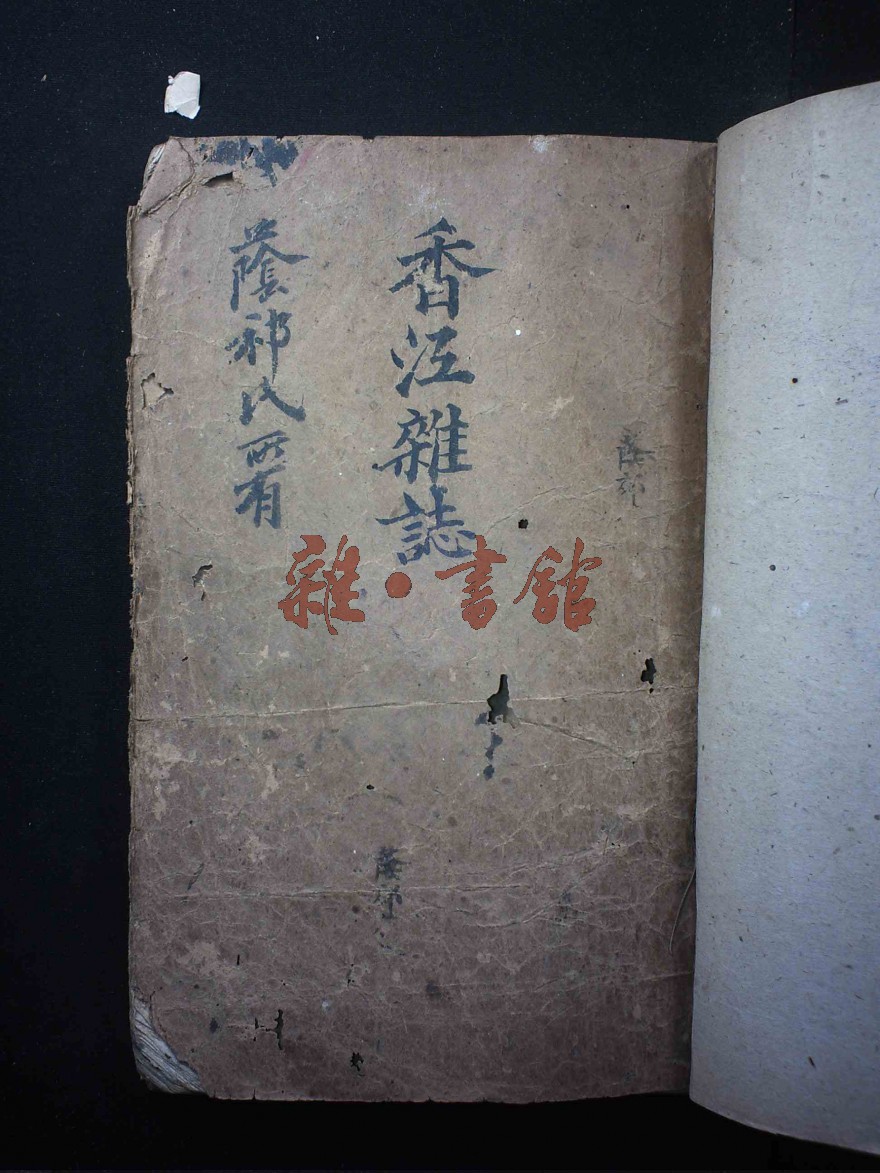 蔭祁
香江雜誌
蔭祁氏所有
雜·書館
蔭祁